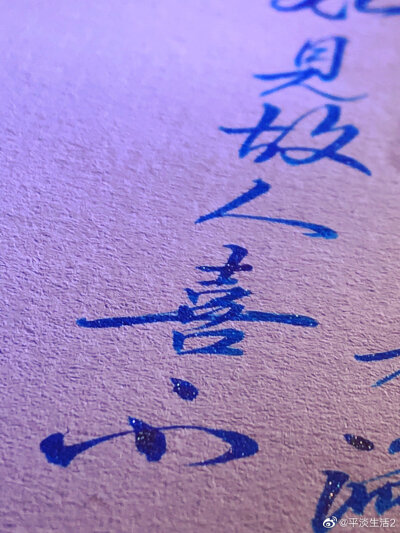 見故人喜心
@平淡生活2